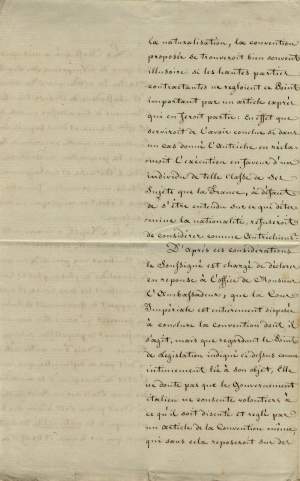 la naturalisation, la convention
proposée se trouveroit bien souvent
illusoire si les hautes parties
contractantes ne regloient ce Point
important par un article exprès
qui en feroit partie. En effet que
serviroit de l'avoir conclue si dans
un cas donné l'Autriche en récla-
moit l'exécution en faveur d'un
individu de telle classe de Ses
Sujets que la France, à défaut
de s'être entendue sur ce qui déter-
mine la nationalité, refuseroit
de considérer comme Autrichiens?
D'après ces considérations
le Soussigné est chargé de déclarer
en réponse à l'office de Monsieur
l'Ambassadeur, que la Cour
Impériale est entierement disposée
à conclure la convention dont il
s'agit, mais que regardant le Point
de législation indiqué ci dessus comme
intimement lié à son objet, Elle
ne doute pas que le Gouvernement
ne consente volontiers à
ce qu'il soit discuté et reglé par
un article de la Convention même
qui sans cela reposeroit sur des